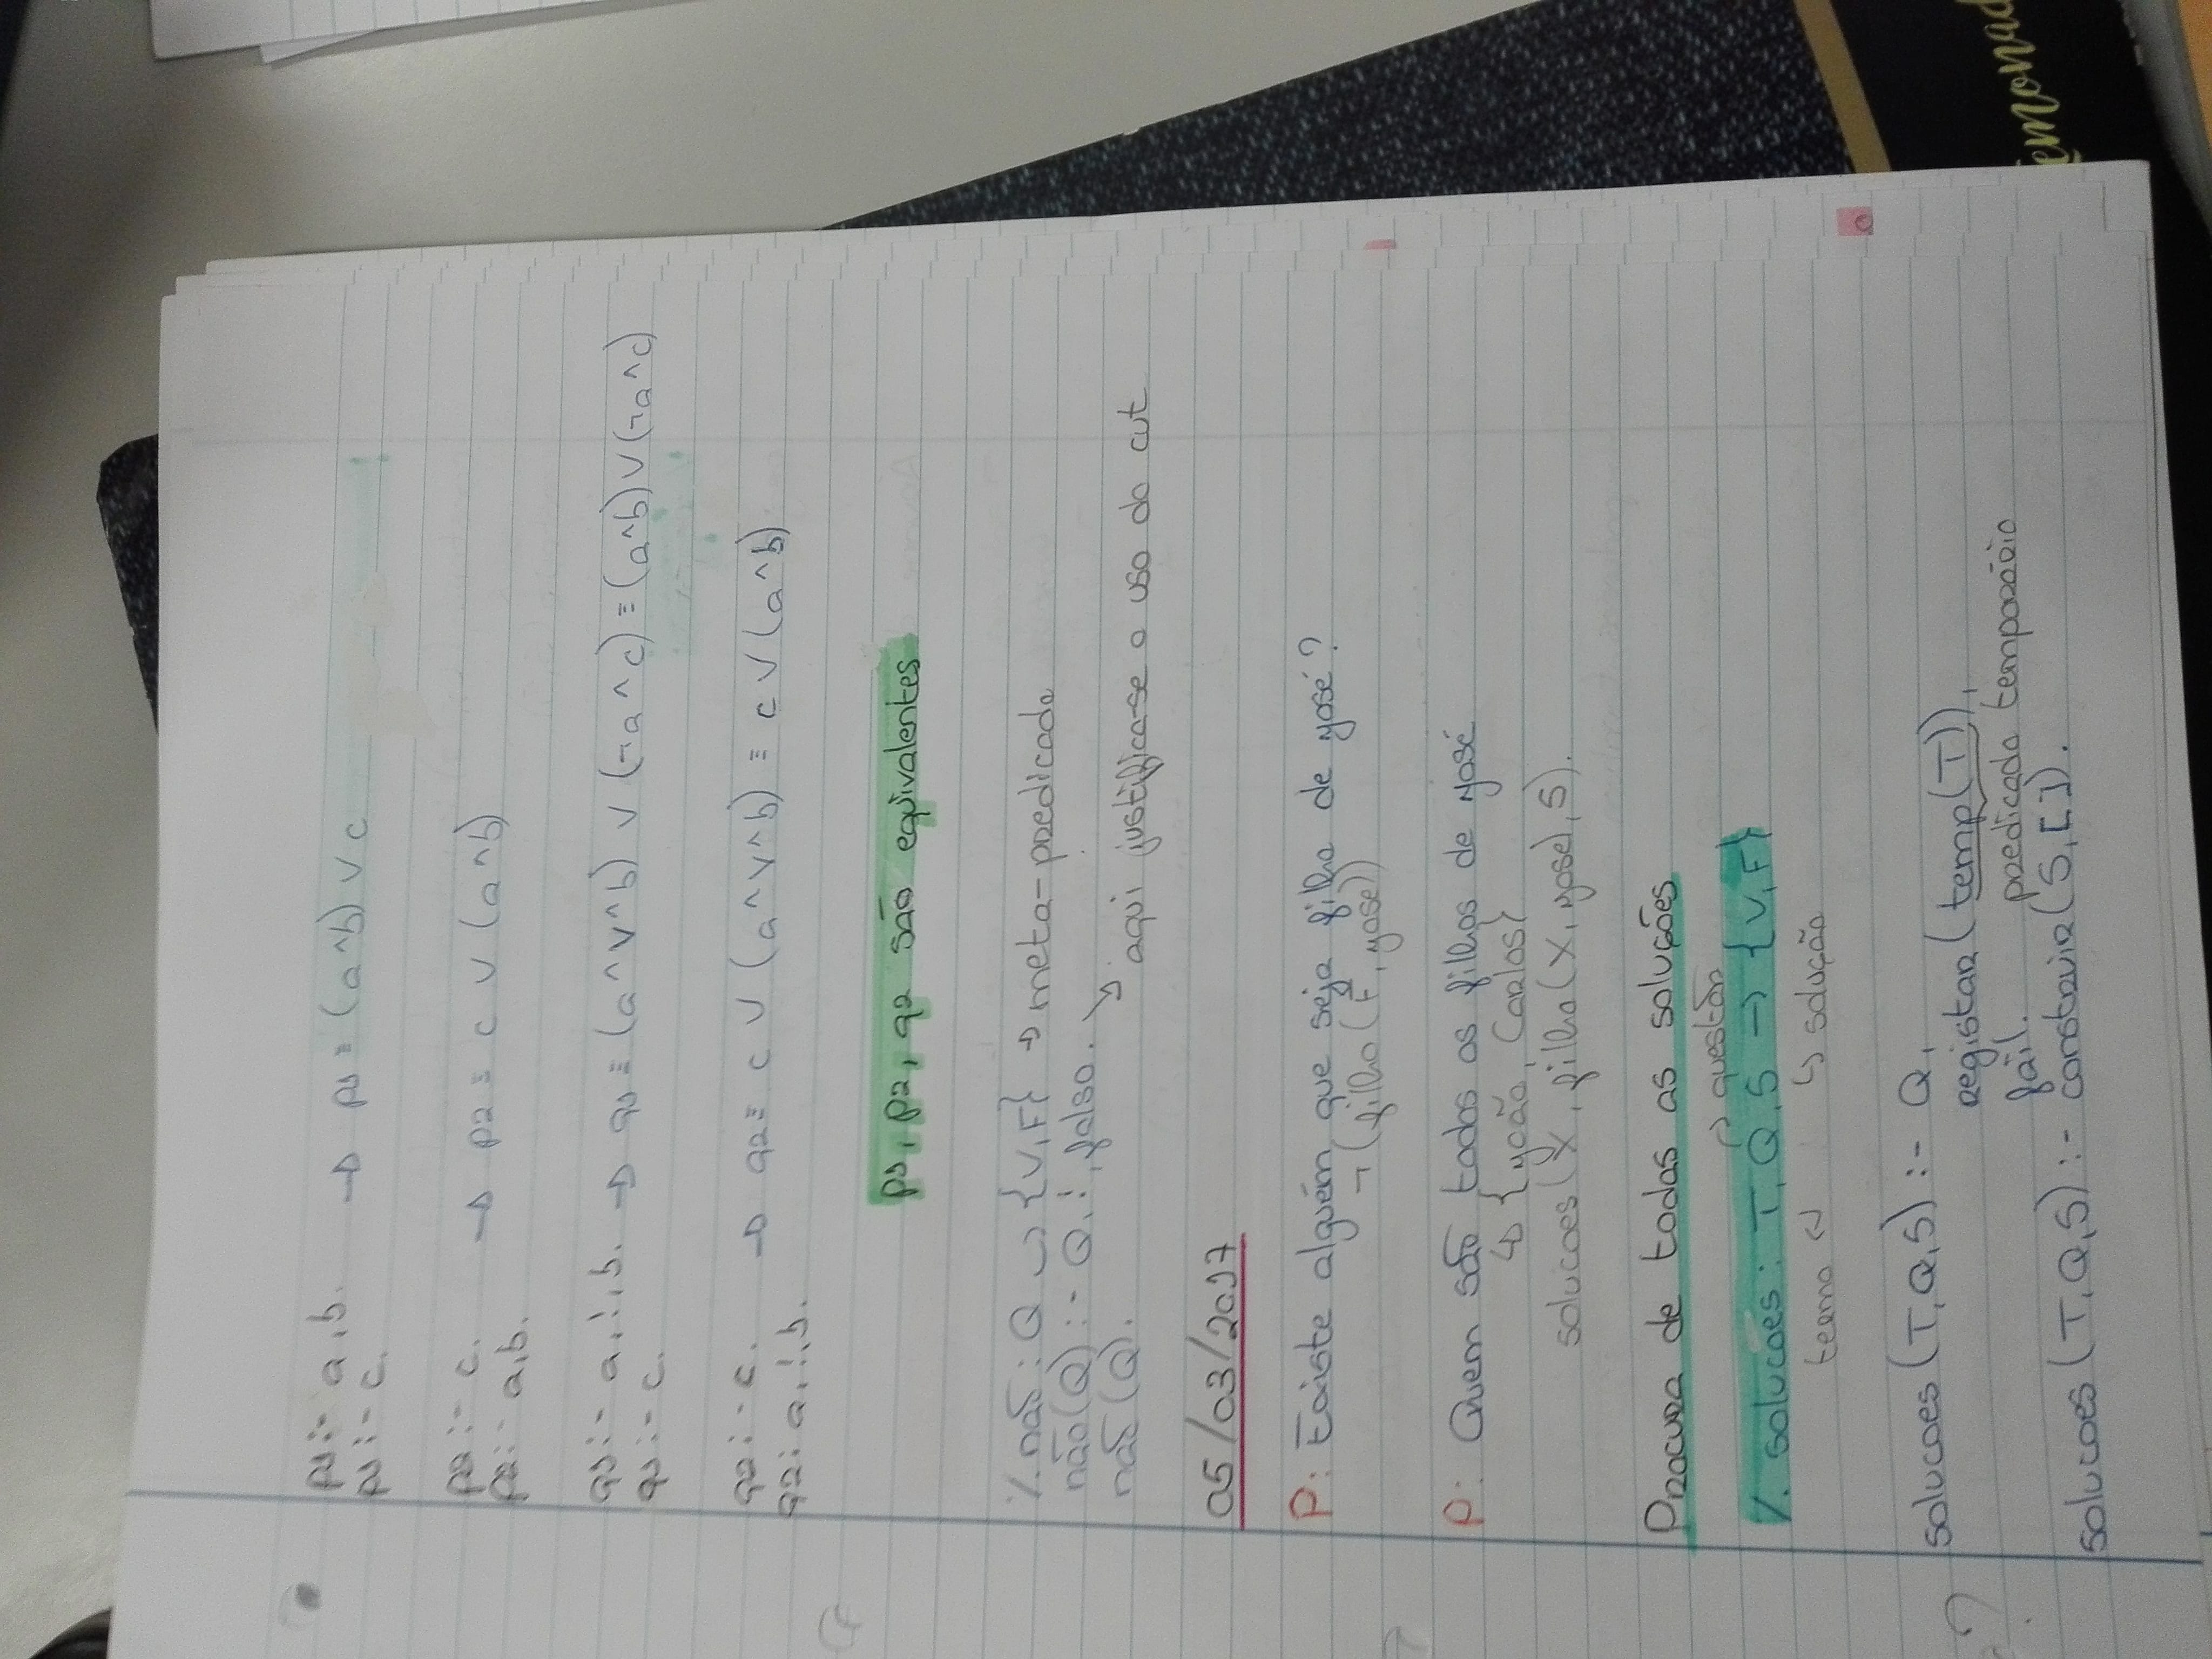 p1:- a,b. → p1 ≡ (a^b) v c
p1:- c.
p2:- c. → p2 ≡ c v (a^b)
p2:- a,b.
q1:- a,!,b. → q1 ≡ (a^v^b) v (¬a^c) ≡ (a^b) v (¬a^c)
q1:- c.
q2:- c. → q2 ≡ c v (a^v^b) ≡ c v (a^b)
q2:- a,!,b.
p1, p2, q2 são equivalentes
%.não: Q ↪ {V,F} → meta-predicado
não(Q) :- Q,!,falso.
não(Q). ↘ aqui justifica-se o uso do cut
05/03/2017
P: Existe alguém que seja filho de josé?
¬(filho(F,jose))
P: Quem são todos os filhos de josé
↳ {joão, Carlos}
solucoes(X, filho(X,jose),S).
Procura de todas as soluções
questão
%. soluções: T,Q,S → {V,F}
termo ↲ ↳ solução
solucoes(T,Q,S) :- Q,
registar(temp(T)),
fail. predicado temporário
solucoes(T,Q,S) :- construir(S,[]).
?
emonad